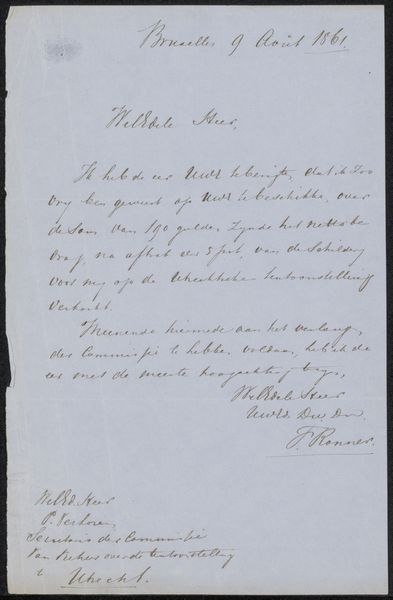 Bruxelles 9 Août 1861.
WelEdele Heer,
Ik heb de eer UwE te berigten, dat ik zoo
vry ben geweest op UwE te beschikken, over
de Som van 190 gulden zynde het netto be
drag, na aftrek der 5 pct, van de Schildery
voor my op de Utrechtsche tentoonstelling
Verkocht.
Meenende hiermede aan het verlangen
der Commissie te hebben voldaan, heb ik de
eer met de meeste hoogachting te zyn,
WelEdele Heer
UwEd. Dw Dr.
F. Ronner.
WelEd. Heer
P. Verloren
Secretaris der Commissie
van beheer over de tentoonstelling
te Utrecht.